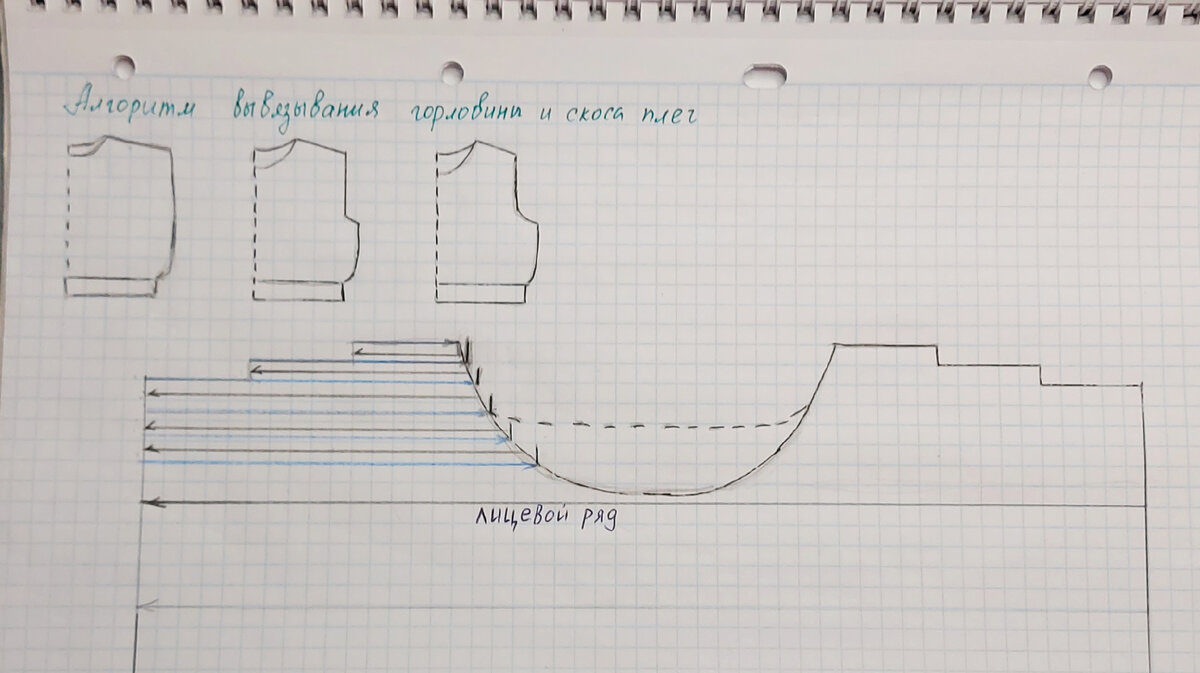 Алгоритм вывязывания горловины и скоса плеч
лицевой ряд